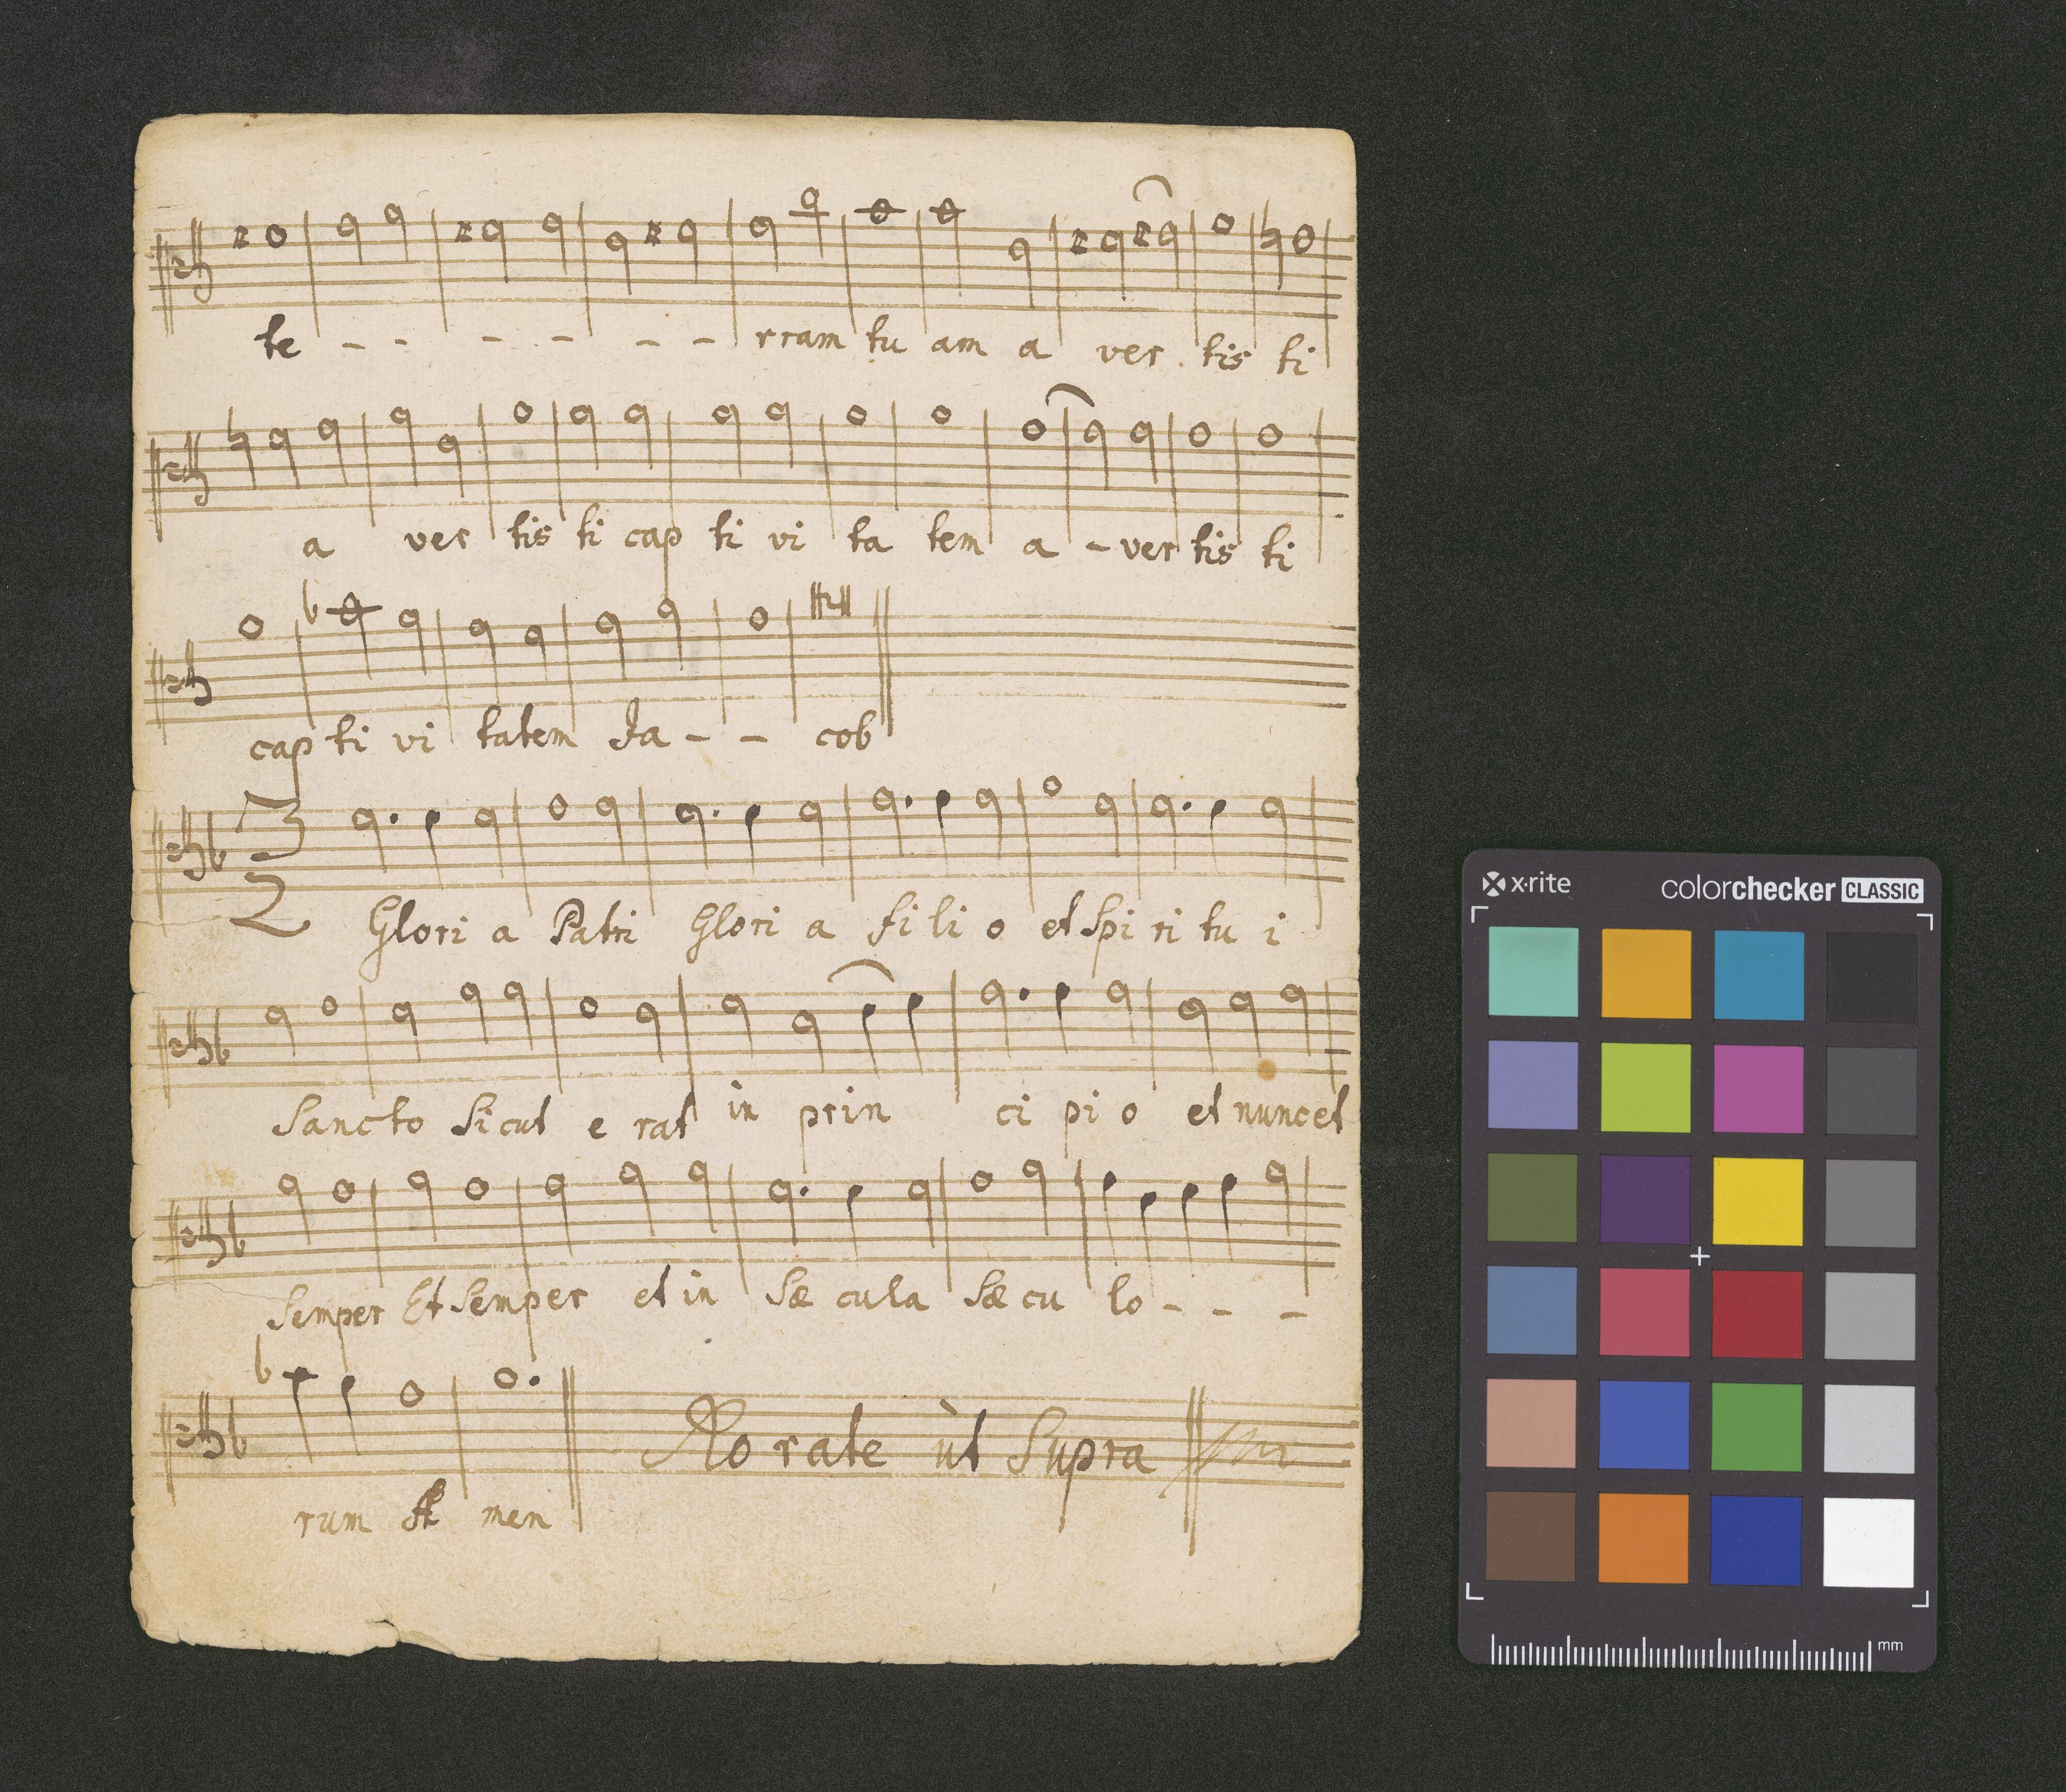 te - - - - - - rram tu am a ver tis ti
a ver tis ti cap ti vi ta tem a - ver tis ti
cap ti vi tatem Ja - - cob
3
2
Glori a Patri Glori a fi li o et Spi ri tu i
Sancto Sicut e rat in prin ci pi o et nunc et
Semper Et Semper et in Sæ cula Sæ cu lo - - -
Rorate ùt Supra
rum A men
x·rite colorchecker CLASSIC
mm